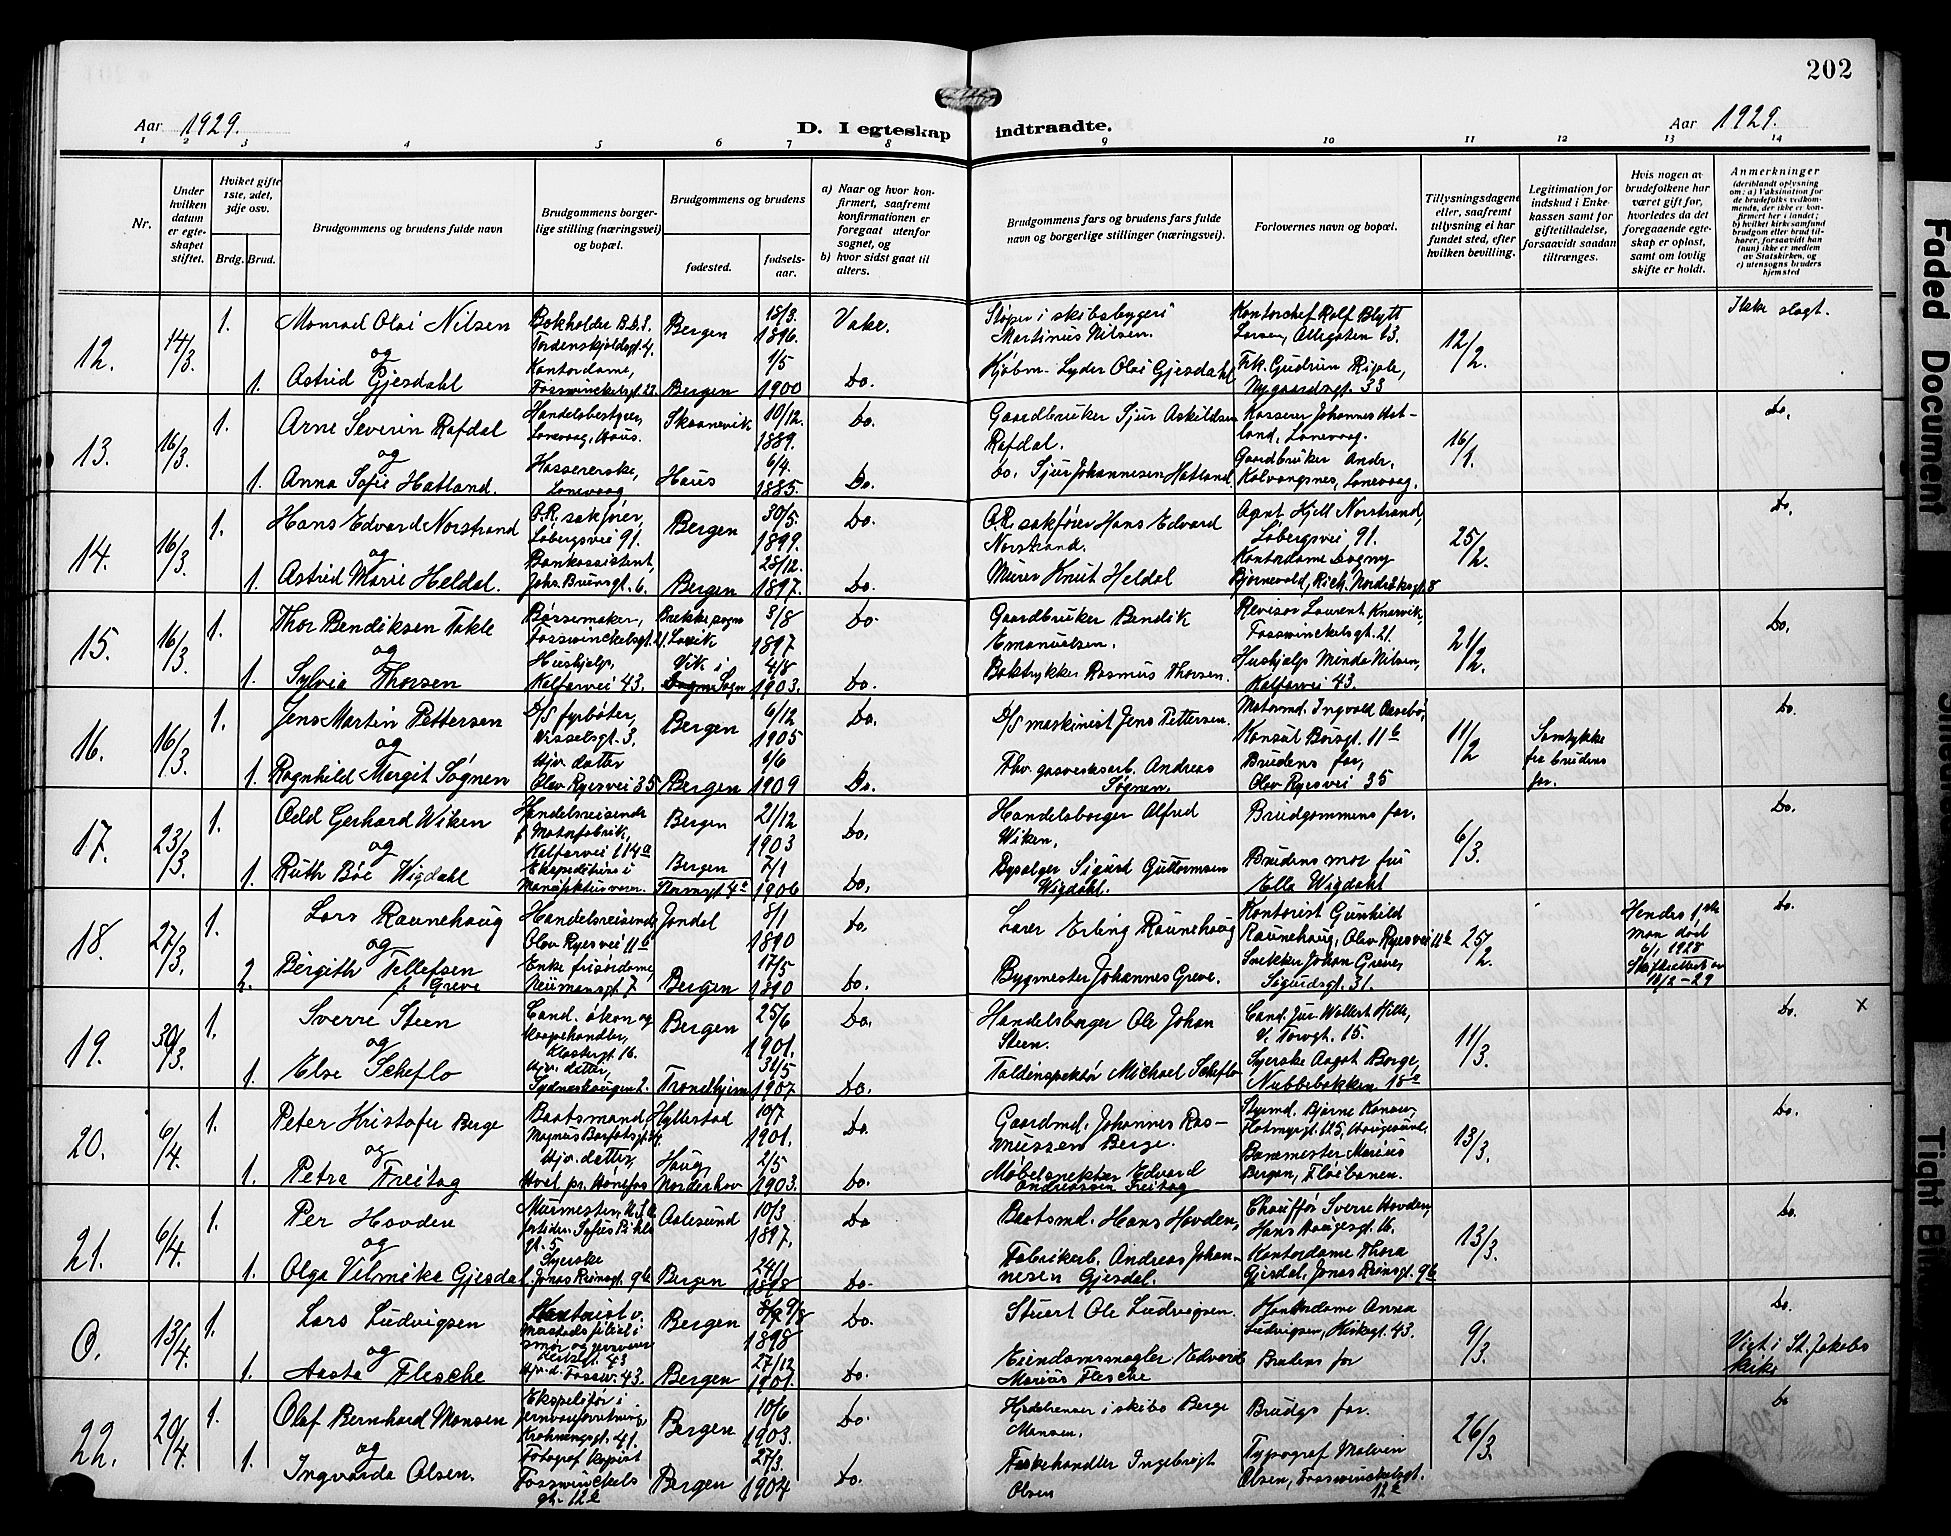 202
Aar 1929. D. I egteskap indtraadte. Aar 1929.
1 2 3 4 5 6 7 8 9 10 11 12 13 14
Nr.
Under hvilken datum er egteskapet stiftet.
Hviket gifte 1ste, 2det, 3dje osv.
Brdg. Brud.
Brudgommens og brudens fulde navn
Brudgommens borgerlige stilling (næringsvei) og bopæl.
Brudgommens og brudens
fødested.
fødselsaar.
a) Naar og hvor konfirmert, saafremt konfirmationen er foregaat utenfor sognet, og
b) hvor sidst gaat til alters.
Brudgommens fars og brudens fars fulde navn og borgerlige stillinger (næringsvei).
Forlovernes navn og bopæl.
Tillysningsdagene eller, saafremt tillysning ei har fundet sted, efter hvilken bevilling.
Legitimation for indskud i Enkekassen samt for giftetilladelse, forsaavidt saadan tiltrænges.
Hvis nogen av brudefolkene har været gift før, hvorledes da det foregaaende egteskap er opløst, samt om lovlig skifte er holdt.
Anmerkninger (deriblandt oplysning om: a) Vaksination for de brudefolks vedkommende, der ikke er konfirmert her i landet; b) hvilket kirkesamfund brudgom eller brud tilhører, forsaavidt han (hun) ikke er medlem av Statskirken, og c) utensogns bruders hjemsted
12. 14/3 1. Monrad Olai Nilsen Bokholder B.b.S. Tordenskjoldsgt. 4. Bergen 18/3. 1896. Støper i skibsbygeri Martinus Nilsen. Kontorchef Rolf Blytt Larsen, Allegaten 13. 12/2. Ikke slegt.
og
1. Astrid Gjesdahl Kontordame, Fosswinckelsgt. 22. Bergen 1/5 1900 Do. Kjøbm. Lyder Olai Gjesdahl Frk. Gudrun Nygaardsgt. 33
13. 16/3. 1. Arne Severin Rafdal Handelsbestyrer, Lonevaag, Haus. Skaanevik 10/12. 1889. Do. Gaardbruker Sjur Askildsen Rafdal. Kasserer Johannes Hatland, Lonevaag. 16/1. Do.
og
1. Anna Sofie Hatland. Kassererske, Lonevaag, Haus 6/4. 1885. Do. Do. Sjur Johannesen Hatland. Gaardbruker Andr. Kolvangsnes, Lonevaag.
14. 16/3. 1. Hans Edvard Norstrand O.R. sakfører, Løbergsvei 91. Bergen 30/5. 1899. Do. O.R. sakfører Hans Edvard Norstrand. Agnt Kjell Norstrand, Løbergsvei 91. 25/2. Do.
og
1. Astrid Marie Heldal. Bankassistent, Johs. Brunsgt. 6. Bergen 28/12. 1897. Do. Murer Knut Heldal Kontordame Dagny Bjørnevold, Rich. Nordraaksgt. 8
15. 16/3. 1. Thor Bendiksen Takle Børsemaker, Fosswinckelsgt. Brekke sogn 3/8 1897 Do. Gaardbruker Bendik Emanuelsen. Revisor Laurent Knarvik, Fosswinckelsgt. 21. 21/2. Do.
og
1. Sylvia Thorsen Hushjelp, Kalfarvei 43. Vik i Sogn 4/8 1903. Do. Boktrykker Rasmus Thorsen. Hushjelp Minda Nilsen, Kalfarvei 43.
16. 16/3. 1. Jens Martin Pettersen D/S fyrbøter, Nesselsgt. 3. Bergen 6/12 1905 Do. D/S maskinist Jens Pettersen. Motormd. Ingvald Aasebø, Konsul Børsgt. 11b 11/2 Samtykke fra brudens far. Do.
og
1. Ragnhild Margit Søgnen Hjv. datter Olav Ryesvei 35 Bergen 1/6 1909 Do. Fhv. gasverksarb. Andreas Søgnen. Brudens far, Olav Ryesvei 35
17. 23/3. 1. Odd Gerhard Wiken Handelsreisende f. Motorfabrik, Kalfarvei 114a Bergen 21/12 1903 Do. Handelsborger Alfred Wiken. Brudgommens far. 6/3. Do.
og
1. Ruth Böe Wigdahl Ekspeditrise i Manufakturvarer. Bergen 7/1 1906 Do. Bysælger Sigurd Guttormsen Wigdahl. Brudens mor fru Ella Wigdahl
18. 27/3. 1. Lars Raunehaug Handelsreisende, Olav Ryesvei 11b Jondal 8/1 1890 Do. Lærer Erling Raunehaug Kontorist Gunhild Raunehaug, Olav Ryesvei 11b 25/2. Hendes 1ste man død 6/1 1928 Skifteattest av 16/2-29 Do.
og
2. Bergith Tellefsen f. Greve Enke frisørdame, Neumansgt. 7. Bergen 17/5 1890 Do. Bygmester Johannes Greve. Snekker Johan Greve, Sigurdsgt. 31.
19. 30/3. 1. Sverre Steen Cand. økon og kaapehandler, Klostergt. 16. Bergen 25/6 1901. Do. Handelsborger Ole Johan Steen. Cand. jur Wollert Hille, V. Torvgt. 15. 11/3. Do. x
og
1. Else Scheflo Hjv. datter, Sydneshaugen 2. Trondhjem 31/5 1907 Do. Toldinspektør Michael Scheflo Syerske Aagot Borge, Nubbebakken 18a
20. 6/4. 1. Peter Kristofer Berge Baatsmand, Magnus Barfotsgt. Hyllestad 10/7 1901. Do. Gaardmd. Johannes Rasmussen Berge. Styrmd. Bjarne 13/3. Do.
og
1. Petra Freitag Hjv. datter, Hval, pr. Hønefos Haug, Norderhov 2/5 1903. Do. Møbelsnekker Edvard Andreassen Freitag Banemester Marius Bergen, Fløibanen.
21. 6/4. 1. Per Hovden Murmester, Aalesund 10/3. 1897. Do Baatsmd. Hans Hovden, Chauffør Sverre Hovden, Hans Haugesgt. 16. 13/3. Do.
og
1. Olga Vilmika Gjesdal Syerske Jonas Reinsgt. 9b Bergen 24/1 1898 Do. Fabrikarb. Andreas Johannesen Gjesdal. Kontordame Thora Gjesdal, Jonas Reinsgt. 9b
0. 13/4. 1. Lars Ludvigsen Bergen 9/8 1898 Do. Stuert Ole Ludvigsen. Kontordame Anna Ludvigsen, 43. 9/3. Do. Viet i St. Jakobs kirke
og
1. Aasta Flesche Hjv. d. Fossw. 43. Bergen 27/12 1901. Do. Eiendomsmægler Edvard Marius Flesche Brudens far
22. 20/4. 1. Olaf Bernhard Monsen Ekspeditør i jernvareforretning, Krohnengsgt. 41. Bergen 10/6 1903. Do. i skibs Berge Monsen. Brudgs far. 26/3. Do
og
1. Ingvarda Olsen. Fotograf kopist Fosswinckels gt. 12a Bergen 27/3. 1904 Do. Fiskehandler Ingebrigt Olsen Typograf Malvin Olsen, Fosswinckelsgt. 12a
Faded Document
Tight Bi